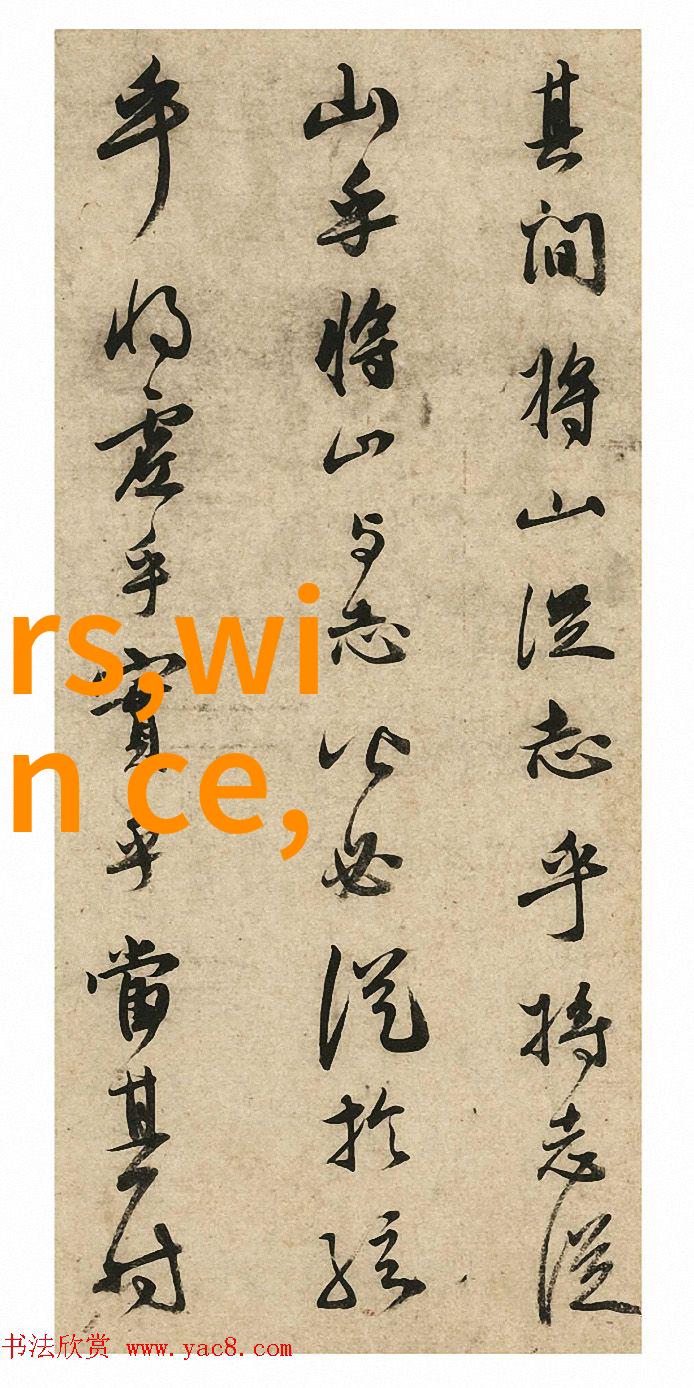 其間將山從志乎將志從
山乎將山与志必從於絃
乎將虛乎實乎當其時
rs,wi
n ce,
书法欣赏 www.yac8.com